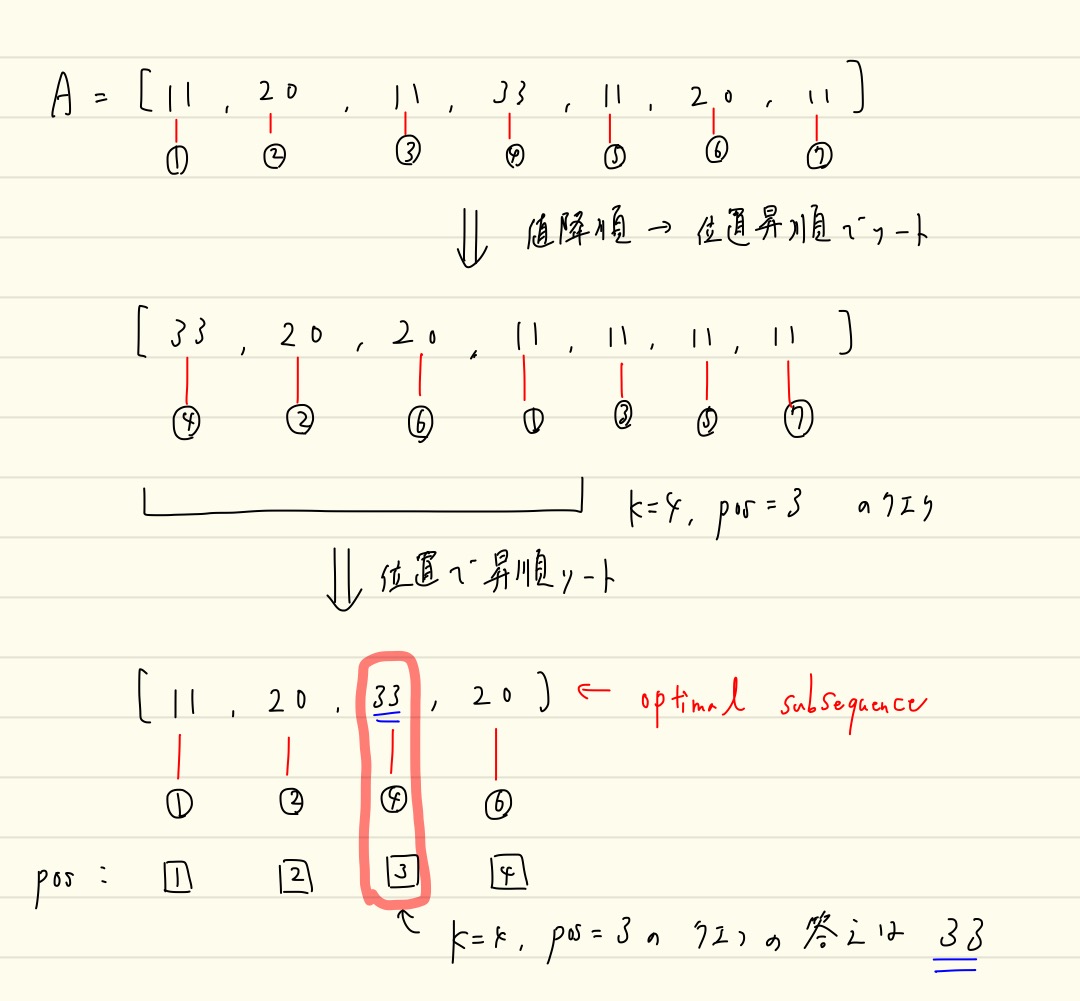 A = [11, 20, 11, 33, 11, 20, 11]
① ② ③ ④ ⑤ ⑥ ⑦
⇓ 値降順 → 位置昇順でソート
[33, 20, 20, 11, 11, 11, 11]
④ ② ⑥ ① ③ ⑤ ⑦
k=4, pos=3 のクエリ
⇓ 位置で昇順ソート
[11, 20, 33, 20] ← optimal subsequence
① ② ④ ⑥
pos: 1 2 3 4
k=4, pos=3 の クエリの答えは 33